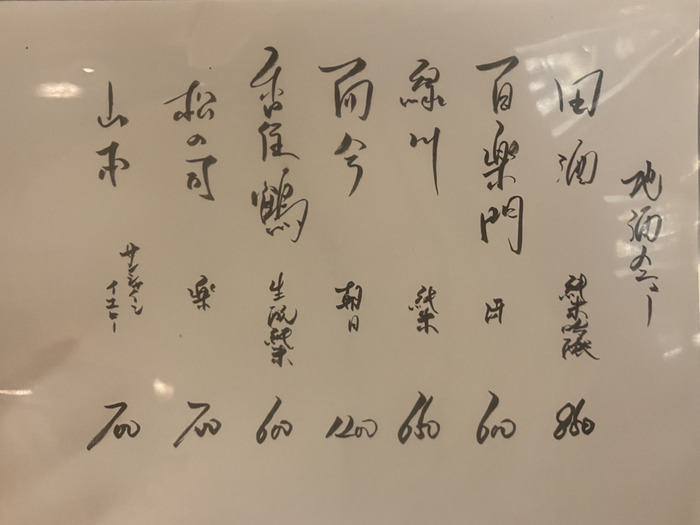 地酒メニュー
田酒 純米吟醸 850
百楽門 冴 600
緑川 純米 650
而今 朝日 1200
香住鶴 生酛純米 600
松の司 楽 700
山本 サンシャイン
イエロー 700